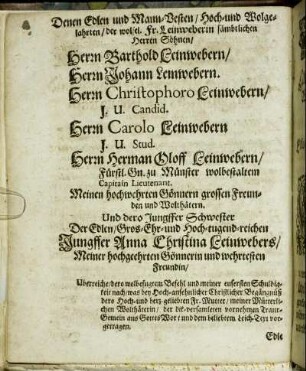 Denen Edlen und Mann-Vesten/ Hoch-und Wolge-
lahrten/ der wol/el. Fr. Leinweberin sämbtlichen
Herren Söhnen/
Herrn Barthold Leinwebern/
Herrn Johann Leinwebern.
Herrn Christophoro Leinwebern/
J. U. Candid.
Herrn Carolo Leinwebern
J. U. Stud.
Herrn Herman Oloff Leinwebern/
Fürstl. Gn. zu Münster wolbestaltem
Capitain Lieutenant.
Meinen hochwehrten Gönnern grossen Freun-
den und Wolthätern.
Und dero Jungffer Schwester
Der Edlen/ Gros-Ehr-und Hoch-tugend-reichen
Jungffer Anna Christina Leinwebers/
Meiner hochgeehrten Gönnerin und wehrtesten
Freundin/
Uberreiche/ dero wolbefugtem Befehl und meiner eusersten Schuldig-
keit nach/ was bey Hoch-ansehnlicher Christlicher Begängnüß
ders Hoch-und hertz geliebten Fr. Mutter/ meiner Mütterli-
chen Wolthäterin/ der dit-versamleten vornehmen Traur-
Gemein aus Gottes Wort/ und dem beliebtem Leich-Text vor-
getragen.
Edle